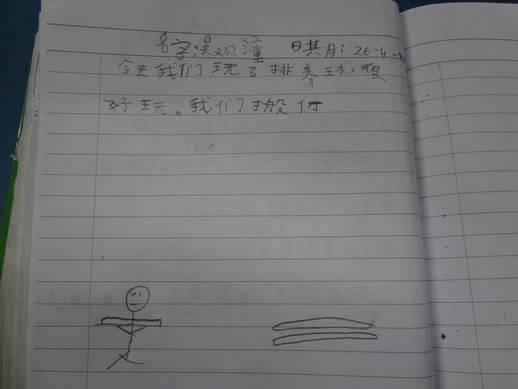 名字吴观潼 日其月：26-4-
今天我们玩了排拳球。很
好玩。我们搬何